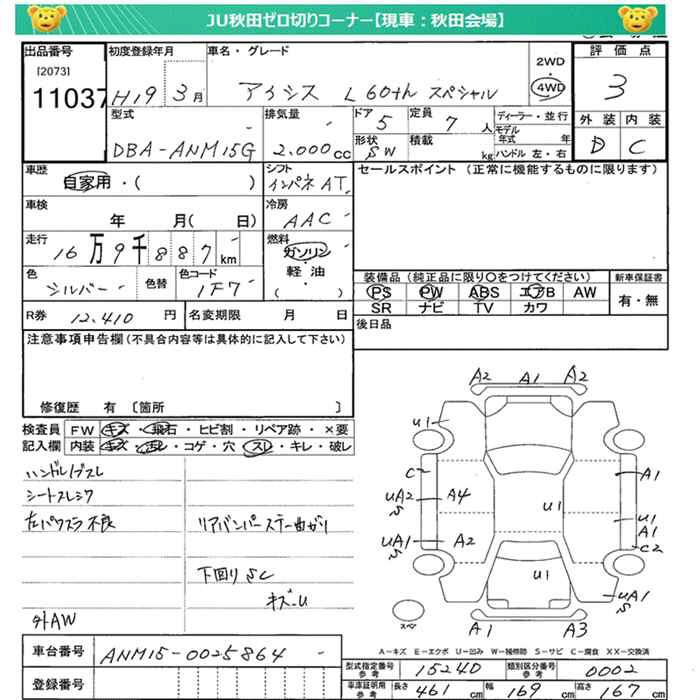 JU秋田ゼロ切りコーナー【現車：秋田会場】
出品番号 初度登録年月 車名・グレード 評価点
[2073] 11037
H19 3月 アイシス L 60th スペシャル 2WD 4WD 3
外装 内装
D C
型式 排気量 ドア 定員 ディーラー・並行
DBA-ANM15G 2.000cc 5 7人 モデル年式 年
形状 積載 ハンドル 左・右
SW kg
車歴 シフト セールスポイント (正常に機能するものに限ります)
自家用・( ) インパネAT
車検 冷房
年 月( 日) AAC
走行 燃料
16万9千887km ガソリン・軽油・( )
色 色替 色コード 装備品(純正品に限り○をつけてください) 新車保証書
シルバー 1F7 PS PW ABS エアB AW 有・無
SR ナビ TV カワ
R券 12.410円 名変期限 月 日 後日品
注意事項申告欄(不具合内容等は具体的に記入して下さい)
修復歴 有 〔箇所 〕
検査員 FW キズ・飛石・ヒビ割・リペア跡・×要
記入欄 内装 キズ・汚レ・コゲ・穴・スレ・キレ・破レ
ハンドルスレ
シートスレシワ
左パワスラ不良 リアバンパーステー曲がり
下回りSC
キズ-U
外AW
A2 A1 A2
U1
C A1
UA2 S A4 U1
UA1 S A2 U1 A1 C2
U1
UA1 S
スペア A1 A3
A-キズ E-エクボ U-凹み W-補修跡 S-サビ C-腐食 XX-交換済
車台番号 ANM15-0025864
型式指定番号 参考 15240 類別区分番号 参考 0002
登録番号
車庫証明用 参考 長さ 461 幅 169 高さ 167
cm cm cm